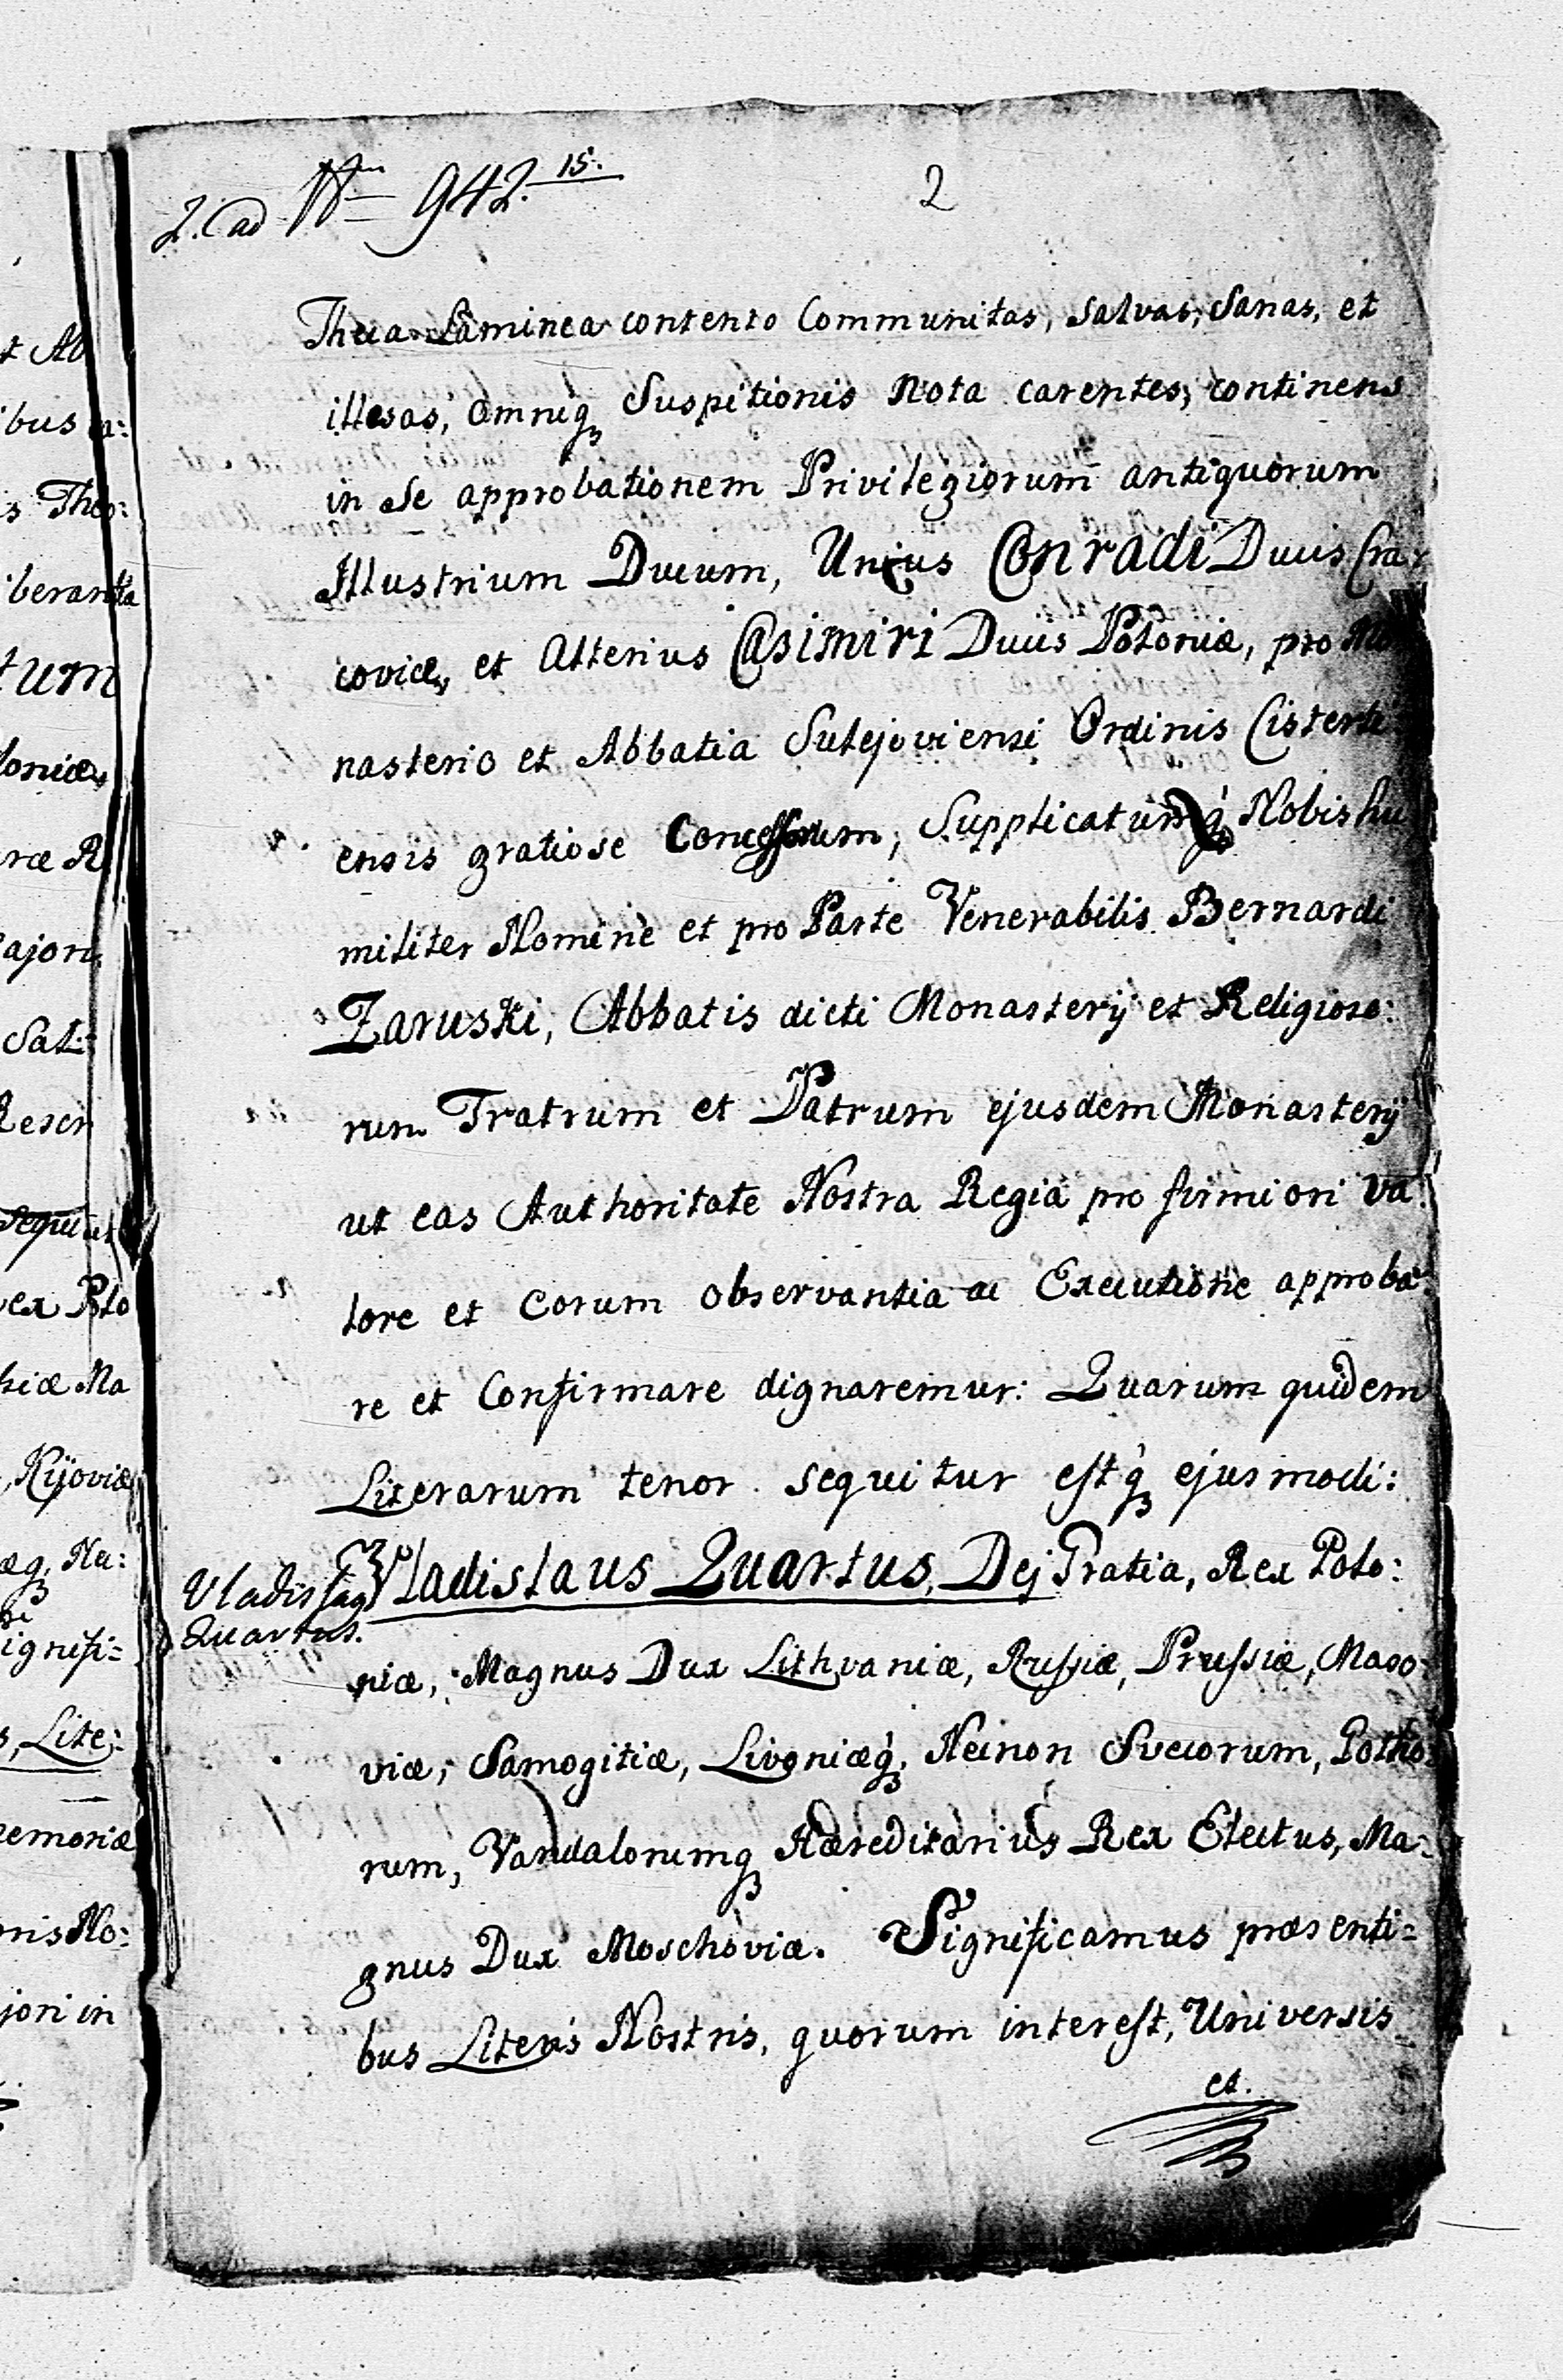 2. ad Nrm 942. 15.
2
Theca Laminea contento Communitas, Salvas, Sanas, et
illesas, omniq; Suspitionis Nota carentes, continens
in Se approbationem Privilegiorum antiquorum
Illustrium Ducum, Unius Conradi Ducis Cra:
coviæ, et Alterius Casimiri Ducis Poloniæ, pro Mo
nasterio et Abbatia Sulejoviensi Ordinis Cisterti
ensis gratiose Concessorum, Supplicatumq; Nobis hu
militer Nomine et pro Parte Venerabilis Bernardi
Zaruski, Abbatis dicti Monasterij et Religioso:
rum Fratrum et Patrum ejusdem Monasterij
ut eas Authoritate Nostra Regia pro firmiori va:
lore et eorum observantia ac Executione approba:
re et Confirmare dignaremur: Quarum quidem
Literarum tenor sequitur estq; ejusmodi:
Vladislaus Quartus, Dej Gratia, Rex Polo:
Vladislaus
Quartus.
niæ, Magnus Dux Lithvaniæ, Russiæ, Prussiæ, Maso:
viæ, Samogitiæ, Livoniæq; Necnon Svecorum, Gotho:
rum, Vandalorumq; Hæreditarius Rex Electus, Ma:
gnus Dux Moschoviæ. Significamus præsenti=
bus Literis Nostris, quorum interest, Universis
et.
t Ab
ibus
s Theo:
iberanta
tum
loniæ,
ræ R
ajori
Sal:
Rescr
sequitur
ex Polo
siæ Ma
, Kijoviæ
æq; Ne:
ignifi=
s, Lite:
emoriæ
nis No:
jori in